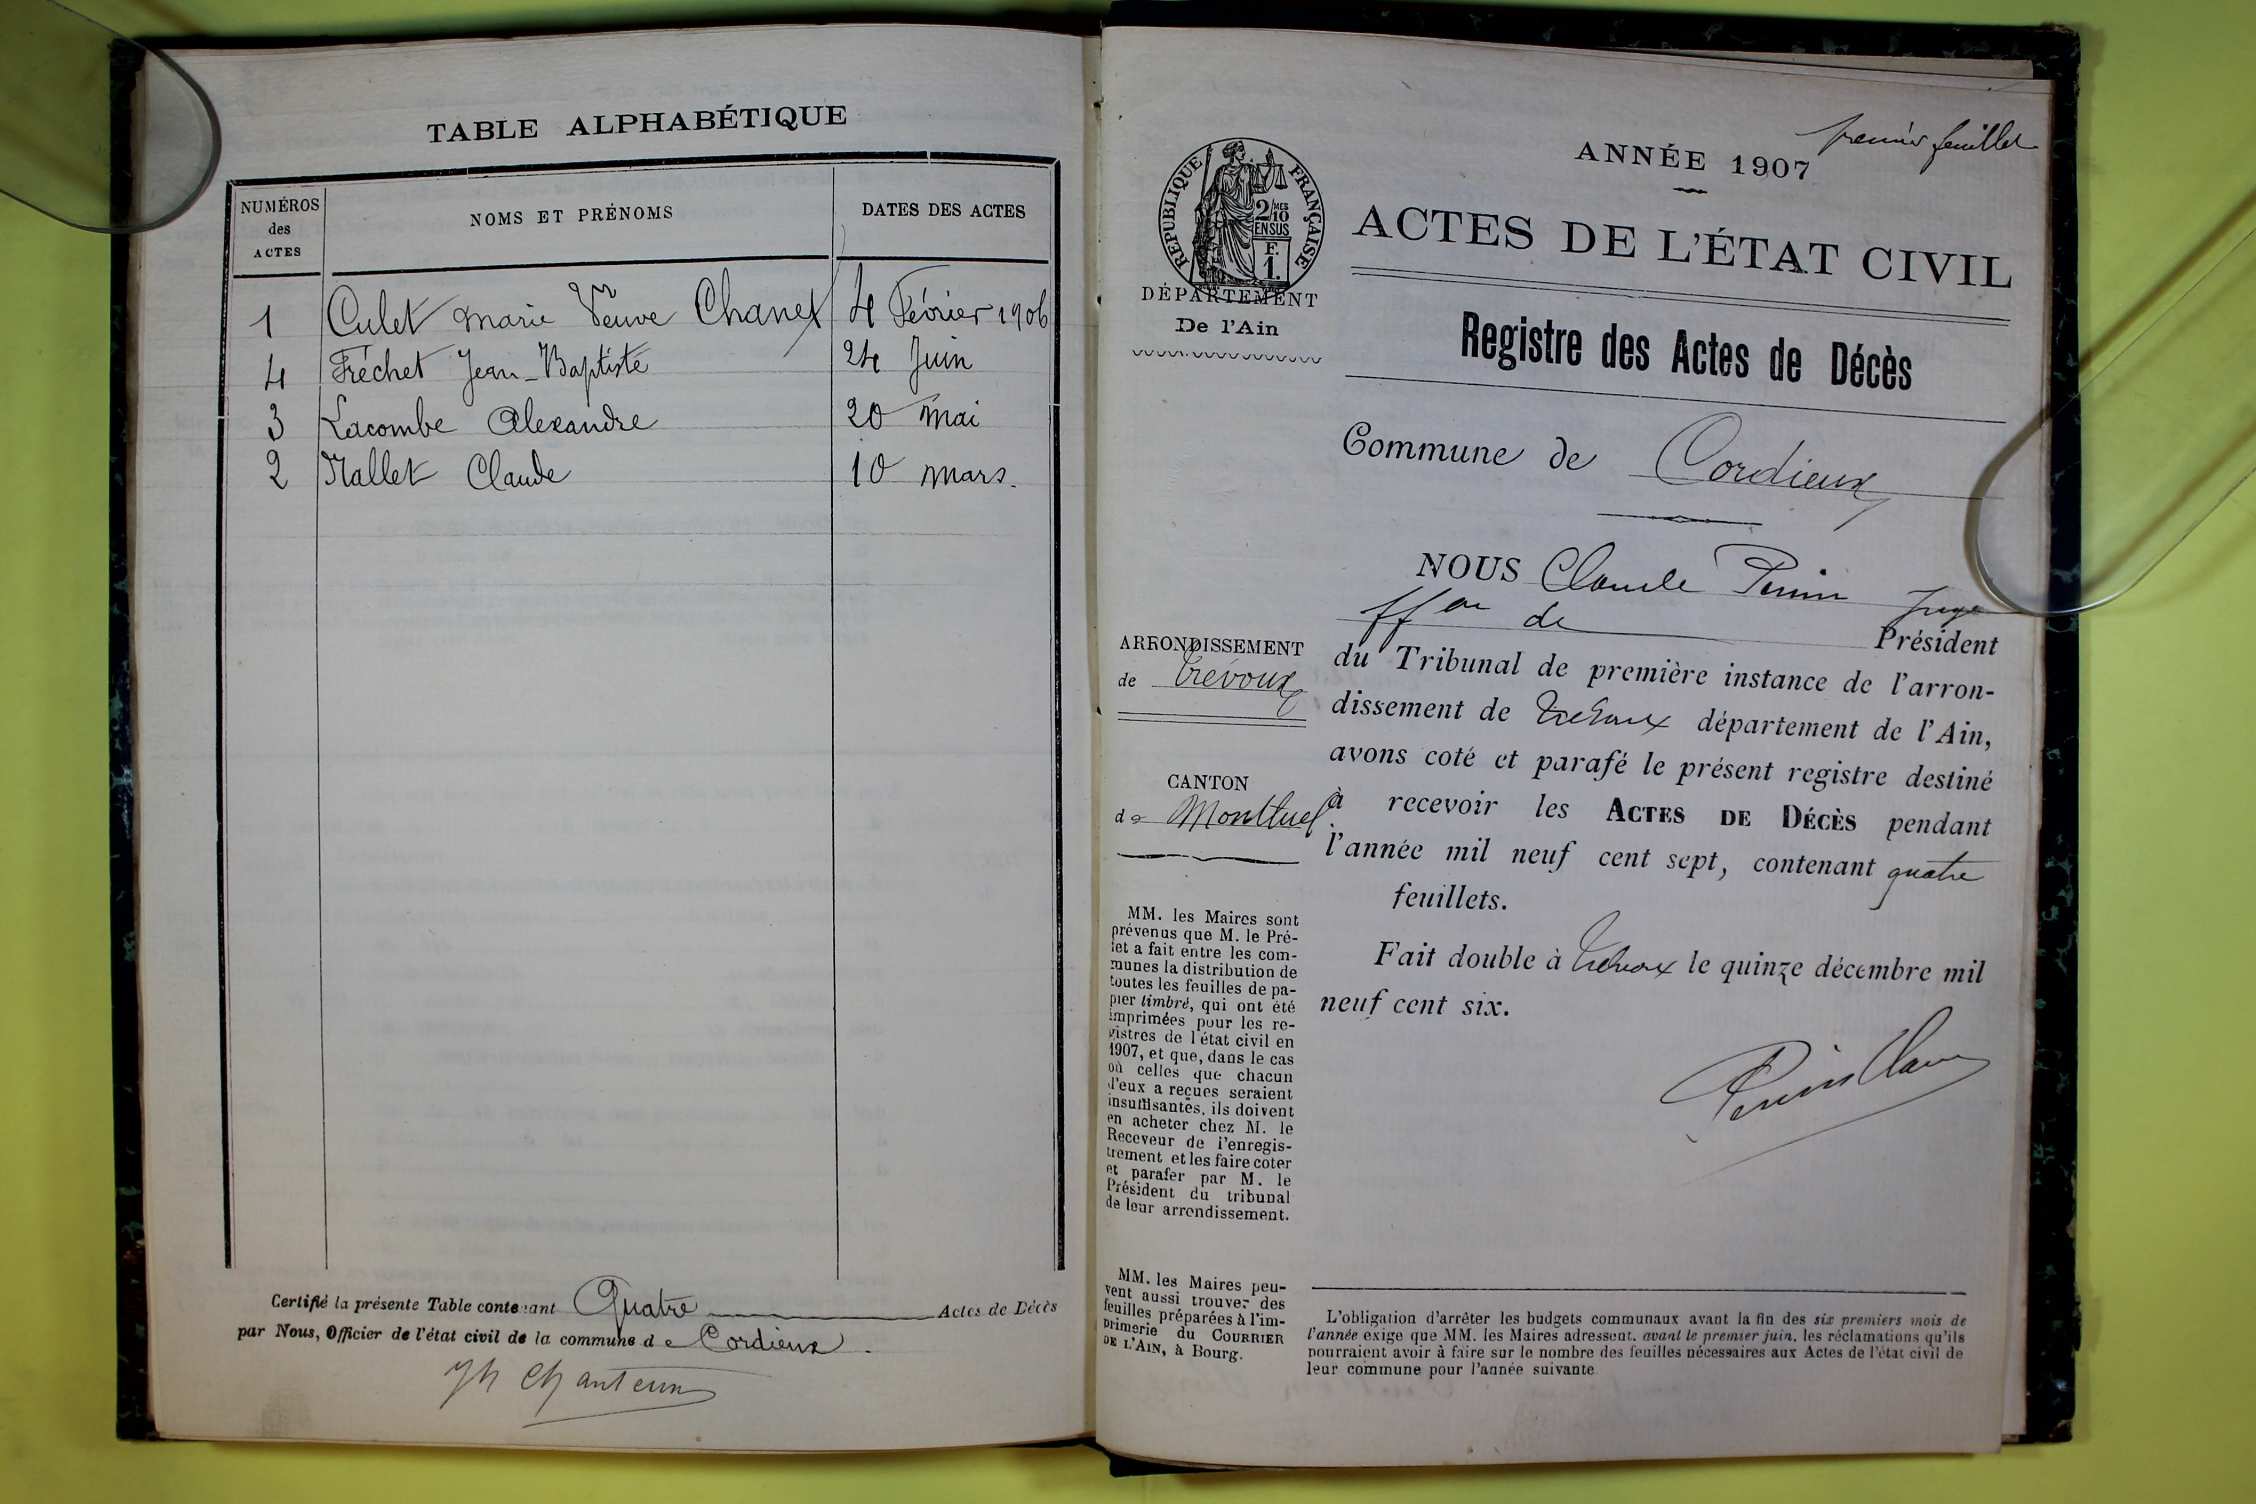 TABLE ALPHABÉTIQUE
NUMÉROS des ACTES NOMS ET PRÉNOMS DATES DES ACTES
1 Culet Marie Veuve Chanel 4 Février 1906
4 Fréchet Jean-Baptiste 24 Juin
3 Lacombe Alexandre 20 Mai
2 Mallet Claude 10 mars.
Certifié la présente Table contenant Quatre Actes de Décès
par Nous, Officier de l'état civil de la commune de Cordieux.
premier feuillet
ANNÉE 1907
RÉPUBLIQUE FRANÇAISE
2/10 MES
EN SUS
F.
1.
ACTES DE L'ÉTAT CIVIL
DÉPARTEMENT
De l'Ain
Registre des Actes de Décès
Commune de Cordieux
NOUS Claude Juge
ffon de Président
du Tribunal de première instance de l'arron-
dissement de Trévoux département de l'Ain,
avons coté et parafé le présent registre destiné
à recevoir les ACTES DE DÉCÈS pendant
l'année mil neuf cent sept, contenant quatre
feuillets.
Fait double à Trévoux le quinze décembre mil
neuf cent six.
ARRONDISSEMENT
de Trévoux
CANTON
de Montluel
MM. les Maires sont
prévenus que M. le Pré-
fet a fait entre les com-
munes la distribution de
toutes les feuilles de pa-
pier timbré, qui ont été
imprimées pour les re-
gistres de l'état civil en
1907, et que, dans le cas
où celles que chacun
d'eux a reçues seraient
insuffisantes, ils doivent
en acheter chez M. le
Receveur de l'enregis-
trement et les faire coter
et parafer par M. le
Président du tribunal
de leur arrondissement.
MM. les Maires peu-
vent aussi trouver des
feuilles préparées à l'im-
primerie du COURRIER
DE L'AIN, à Bourg.
L'obligation d'arrêter les budgets communaux avant la fin des six premiers mois de
l'année exige que MM. les Maires adressent, avant le premier juin, les réclamations qu'ils
pourraient avoir à faire sur le nombre des feuilles nécessaires aux Actes de l'état civil de
leur commune pour l'année suivante